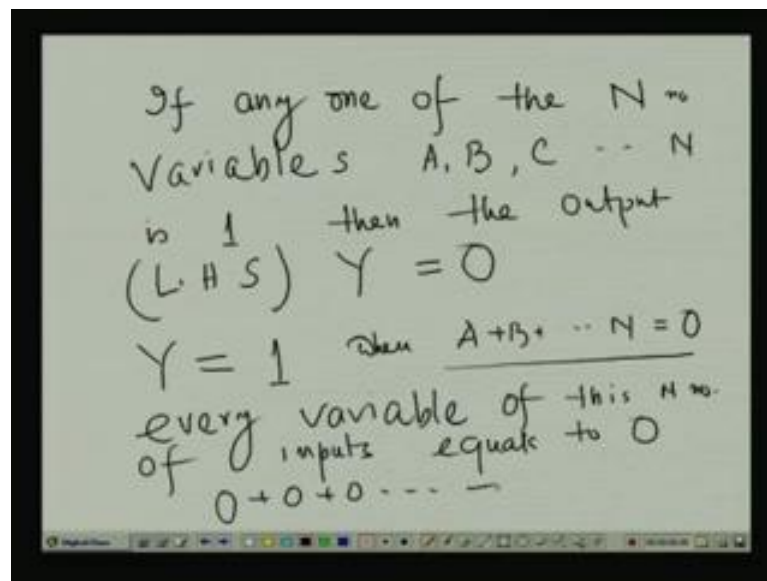 If any one of the N no
Variables A, B, C .. N
is 1 then the output
(L.H S) Y = 0
Y = 1 when A+B+ .. N = 0
every variable of this N no.
of inputs equals to 0
0+0+0---- —